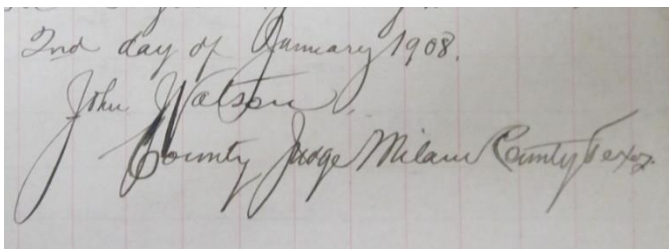 2nd day of January 1908.
John Watson,
County Judge Milam County Texas.